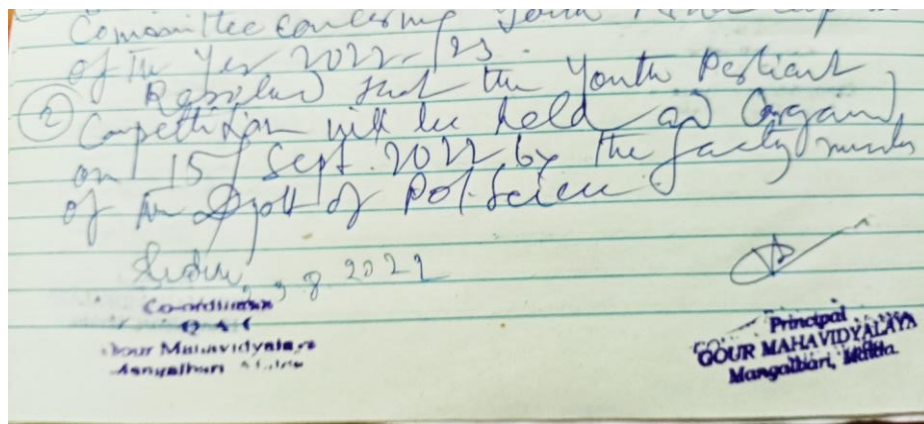 Committee concerning Youth
of the Year 2022-23.
Resolved that the Youth Parliament
② Competition will be held and Organised
on 15 Sept. 2022 by the faculty members
of the Deptt of Pol. Science
8. 2022
Co-ordinator
IQAC
Gour Mahavidyalaya
Mangalbari, Malda
Principal
GOUR MAHAVIDYALAYA
Mangalbari, Malda.